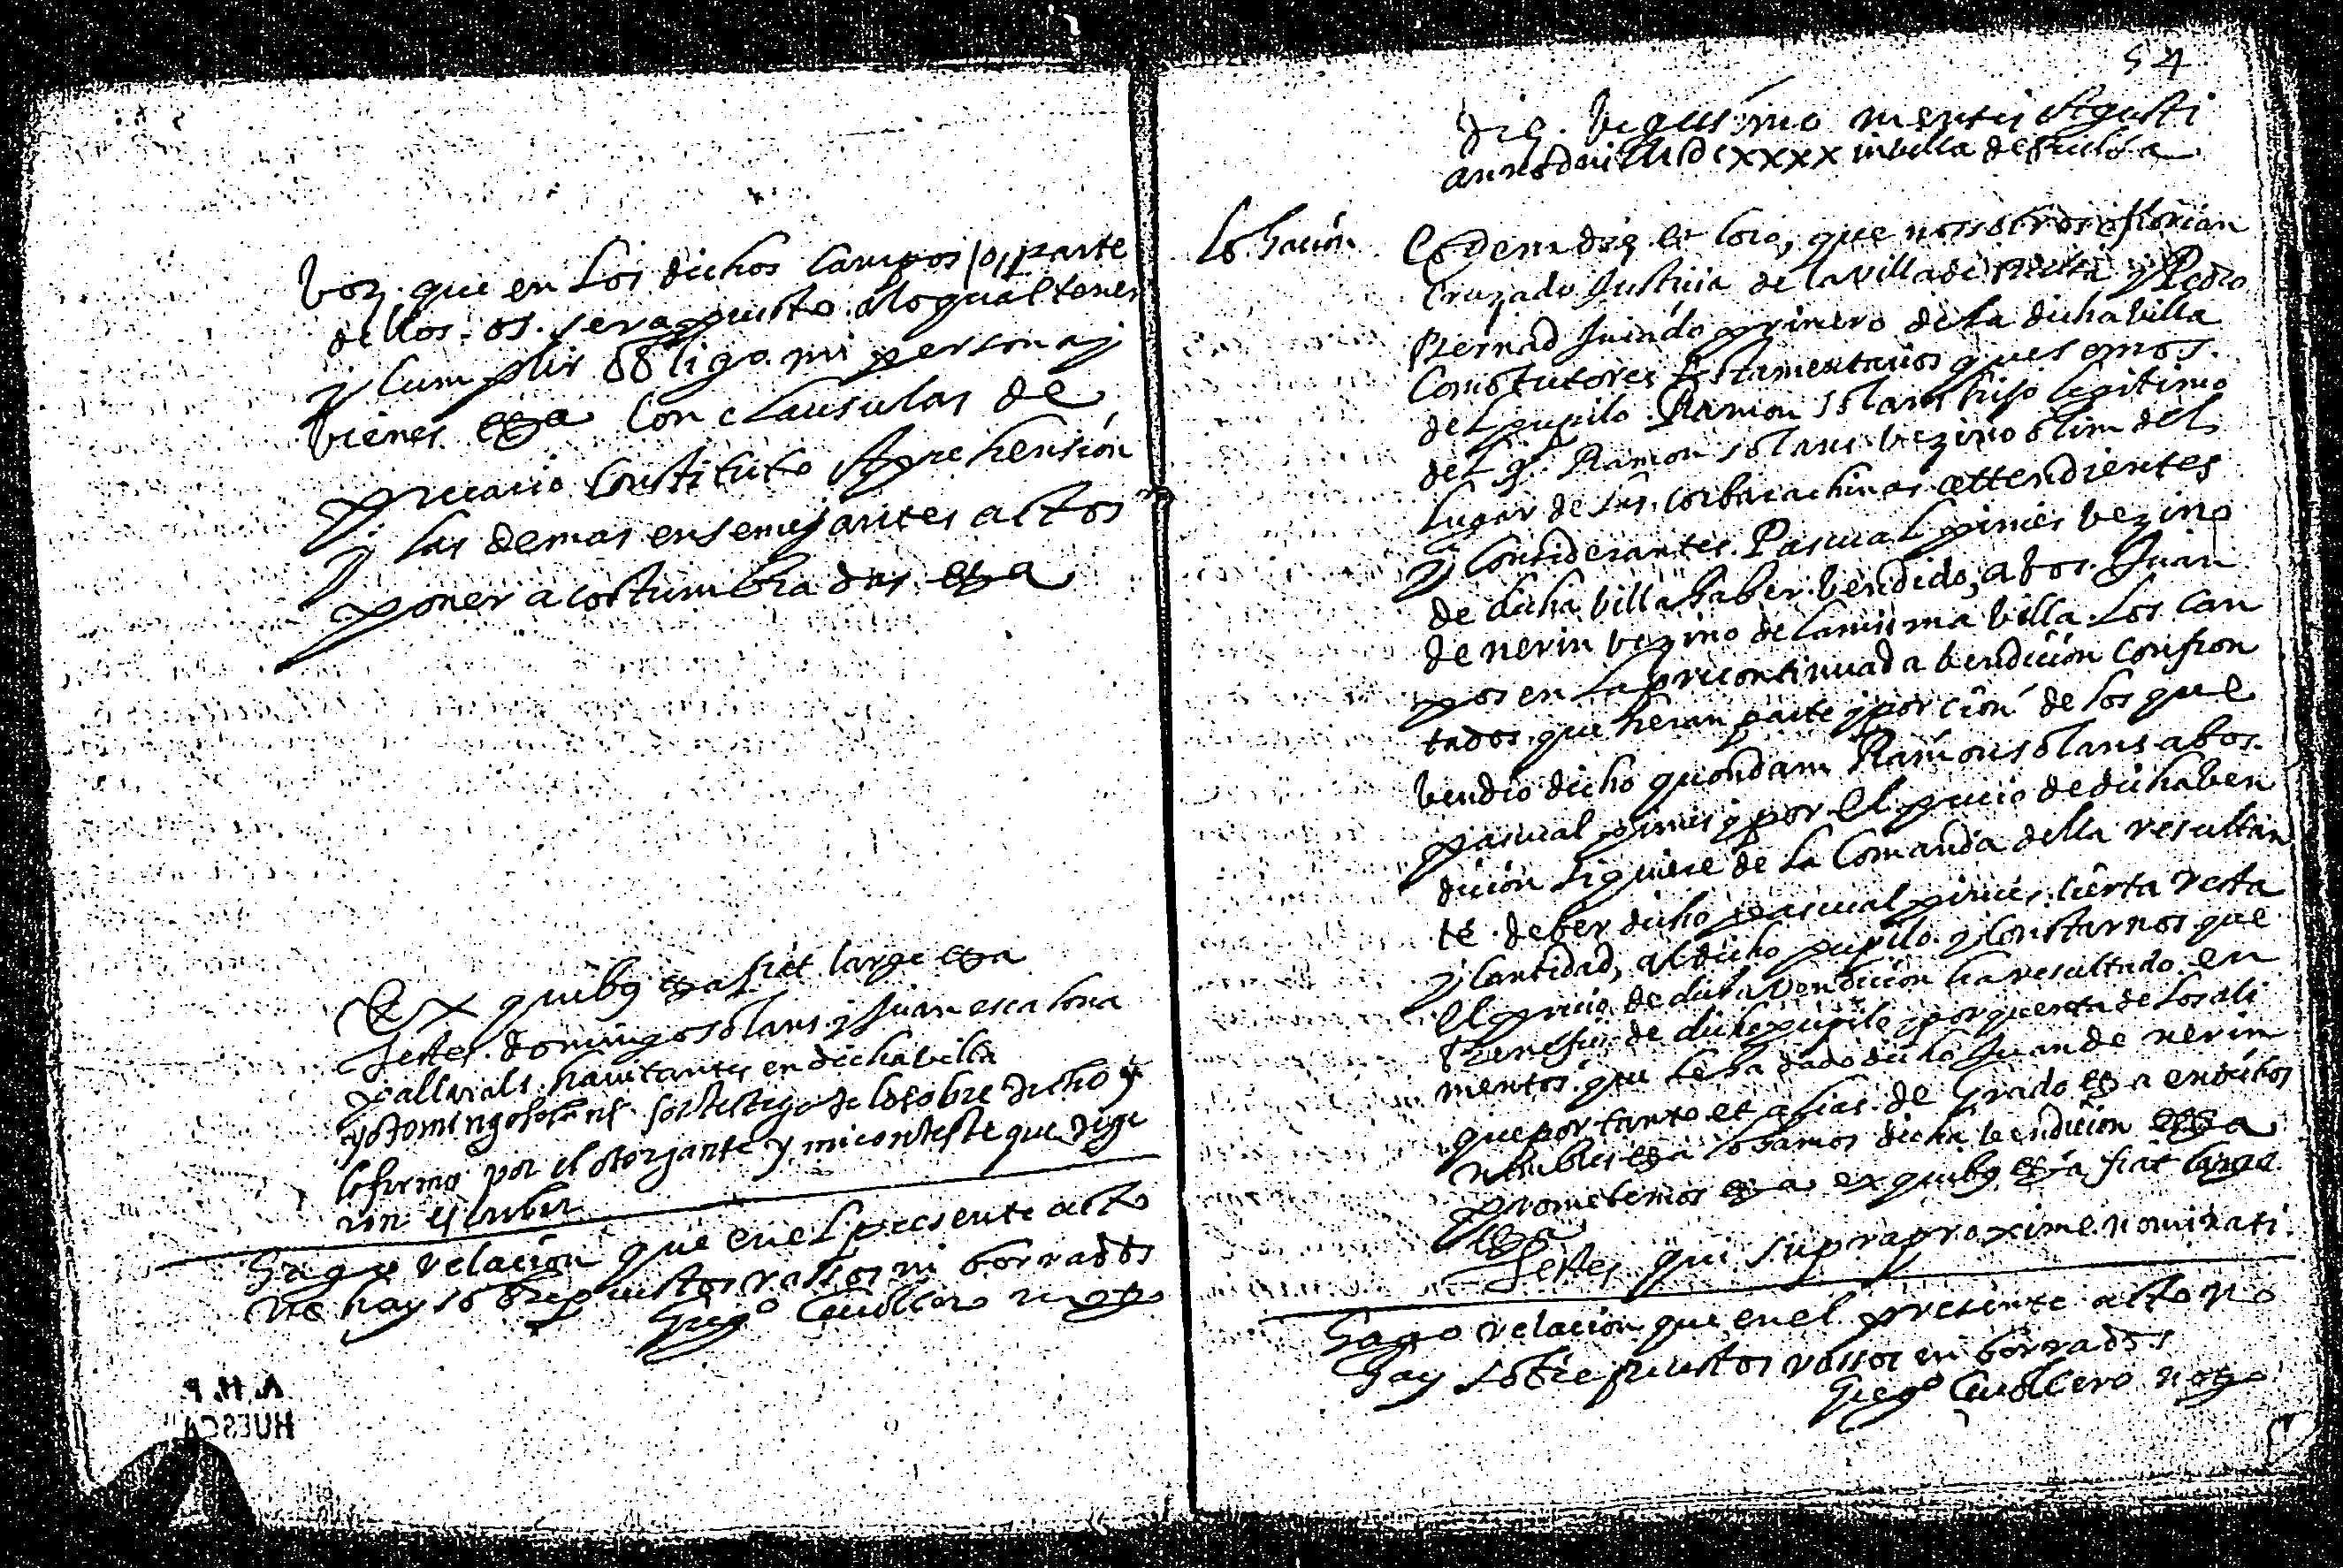 voz. que en los dichos campos /o, parte
dellos. os. sera puesto. a lo qual tener
y cumplir obligo. mi persona y
bienes. etza con clausulas de
precario constituto Aprehension
y las demas en semejantes actos
poner acostumbradas etza
Ex quibus etza fiat large etza
Testes. domingo solans. y Juan escalona
pallerals. havitantes en dicha villa
yo domingo solans soi testigo de lo sobre dicho y
lo firmo por el otorgante y mi conteste que dige
ron escribir
Hago relacion que en el presente acto
no hay sobrepuestos rassos ni borrados
Greg.º Cavallero not.º
A. H. P.
HUESCA
54
Die. vigessimo mensis Agusti
anno d MDCXXXX in villa de
Lohacion
Eodem die et loco, que nosotros florian
Cruzado Justicia de la villa de y Pedro
Bernad Jurado primero de la dicha villa
Como tutores testamentarios que somos.
del pupilo. Ramon solans hijo legitimo
del q.º Ramon solans. vezino olim del
lugar de las. corbarachinas. attendientes
y considerantes. Pascual pinies vezino
de dicha villa haber. vendido, a vos. Juan
de nerin vezino de la misma villa. los cam
pos en la precontinuada vendicion confron
tados. que heran parte y porcion de los que
vendio dicho quondam Ramon solans a vos.
pascual pinies y por el precio de dicha ven
dicion siquiere de la Comanda della resultan
te. deber dicho pascual pinies. cierta resta
y cantidad, al dicho pupilo. y constarnos que
el precio de dicha vendicion ha resultado en
beneficio de dicho pupilo y por quenta de los ali
mentos. que le ha dado dicho Juan de nerin
que por tanto et alias. de Grado etza en dichos
nombres etza lohamos dicha vendicion etza
prometemos etza ex quibus etza fiat large
etza
Testes qui supra proxime nominati.
Hago relacion que en el presente acto no
hay sobrepuestos rassos ni borrados
Greg.º Cavallero not.º